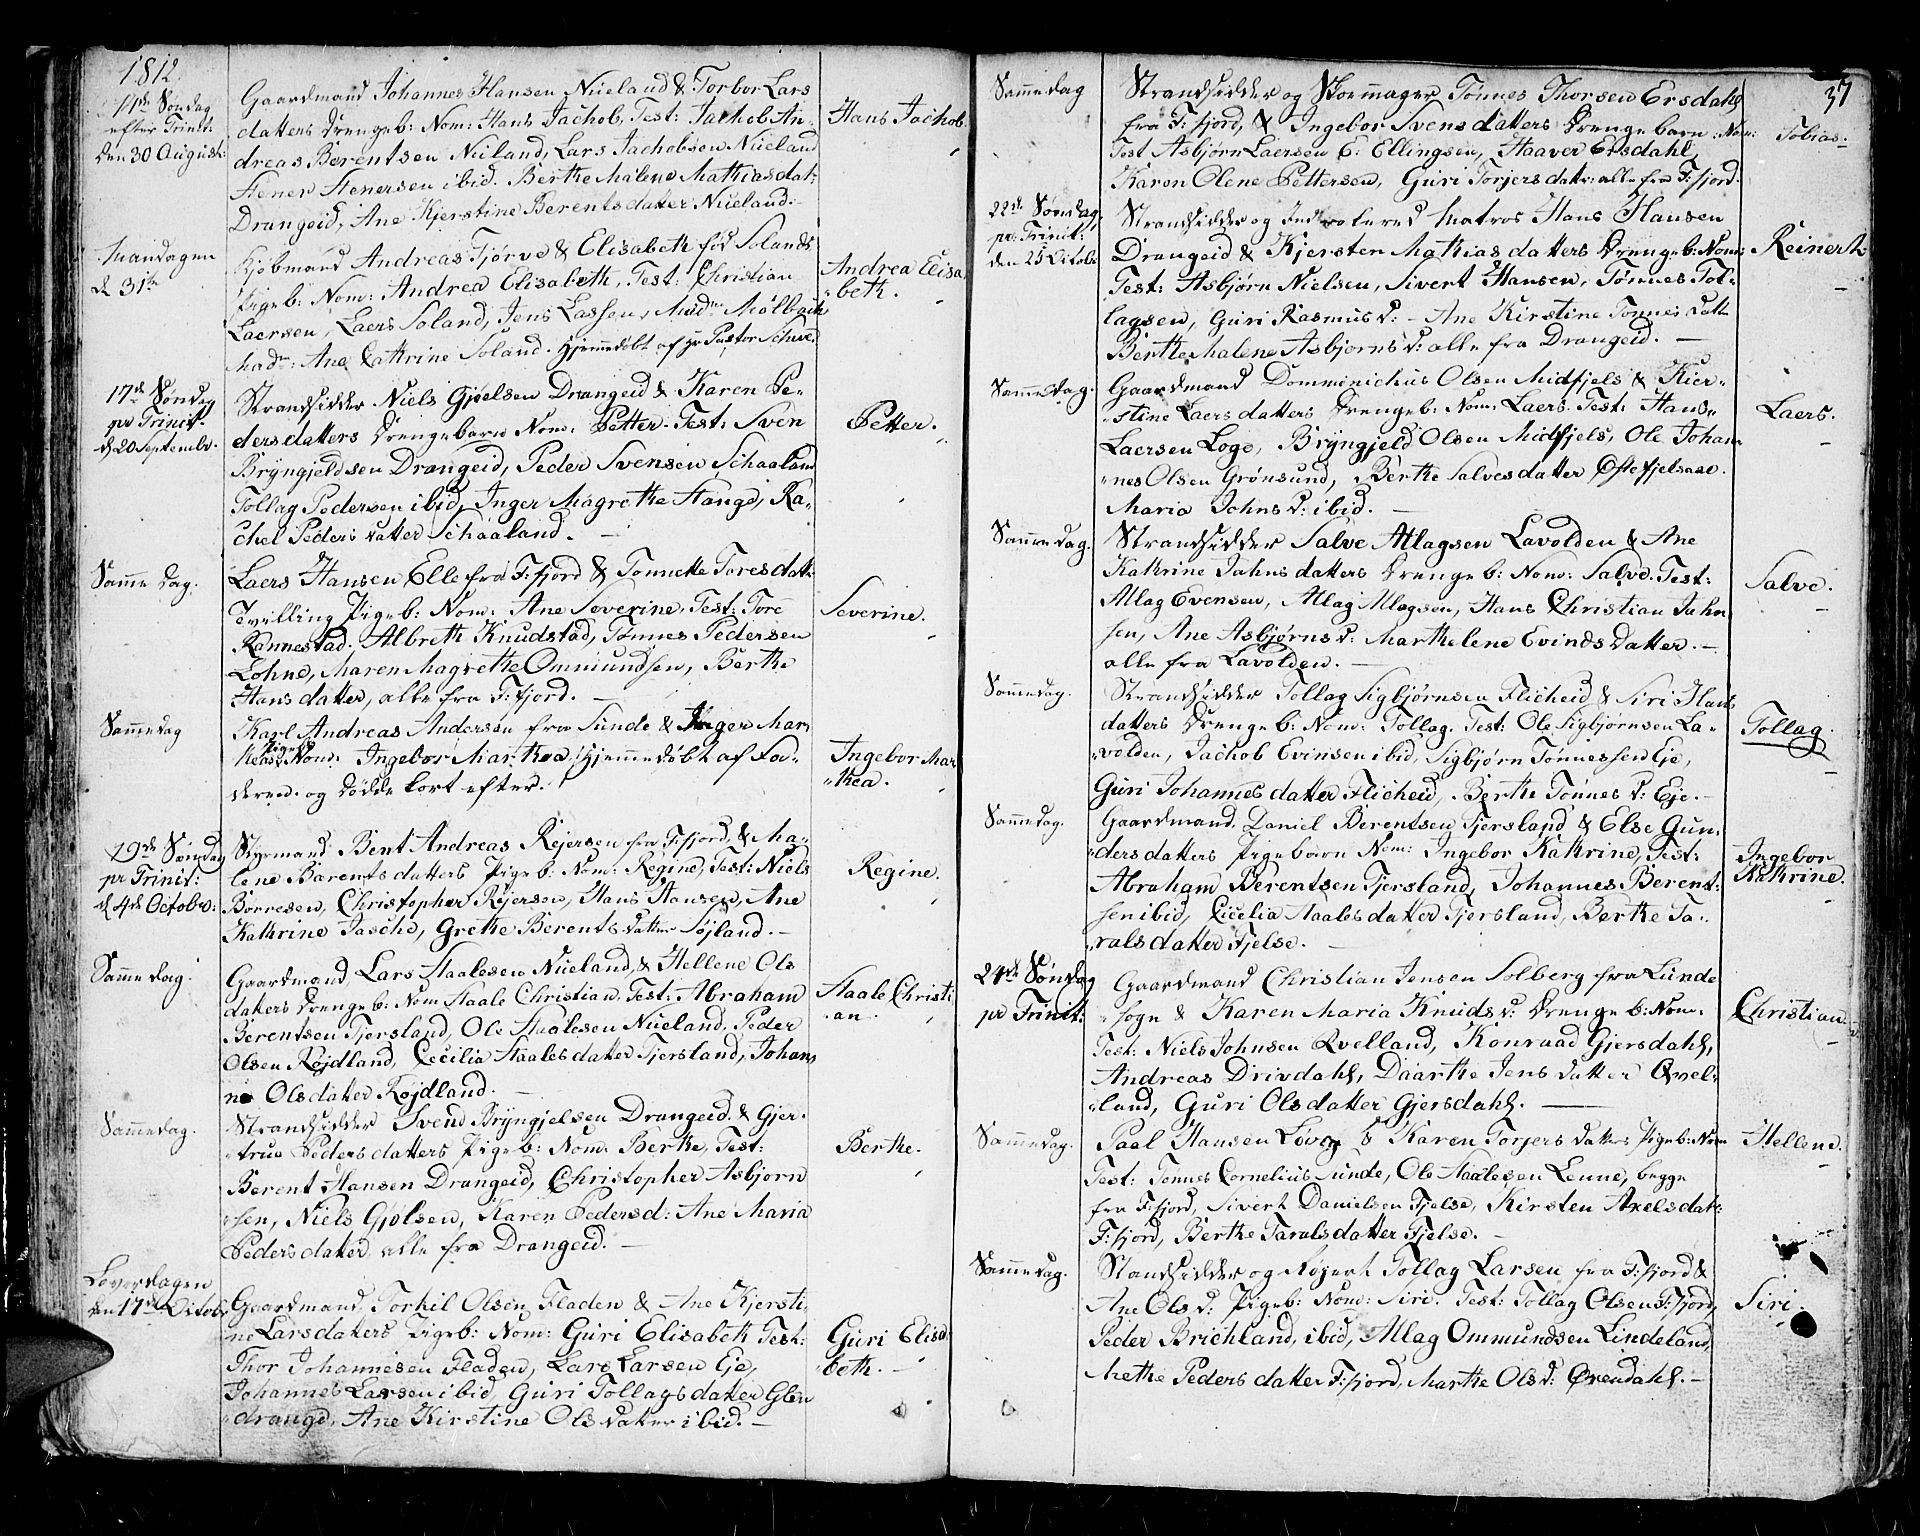 1812.
11te Søndag
efter Trinit:
den 30 August:
Gaardmand Johannes Hansen Nüeland & Torbor Lars
datters Drengeb: Nom: Hans Jachob. Test: Jachob An-
dreas Berentsen Nüland, Lars Jachobsen Nüeland
Stener Stenersen ibid. Berthe Malene Mathiasdat:
Drangeid, Ane Kjerstine Berentsdatter Nüeland.-
Hans Jachob.
Mandagen
d 31te
Kjøbmand Andreas Tjørve & Elisabeth fød Solands
Pigeb: Nom: Andrea Elisabeth, Test: Christian
Laersen, Laers Soland, Jens Lassen, Madme Mølbach
Madme: Ane Cathrine Soland. Hjemmedøbt af Hr Pastor
Andrea Elisa
beth.
17de Søndag
pr Trinit:
d 20 Septembr.
Strandsidder Niels Gjøelsen Drangeid & Karen Pe-
dersdatters Drengebarn Nom: Petter. Test: Sven
Bryngjeldsen Drangeid, Peder Svensen Schaaland
Tollag Pedersen ibid, Inger Magrethe Stange, Ra-
chel Peders datter Schaaland. -
Petter.
Samme dag.
Laers Hansen Elle fra F:fjord & Tonnethe Toresdatt:
Tvilling Pigeb: Nom: Ane Severine. Test: Tore
Rannestad, Albreth Knudstad, Tønnes Pedersen
Lohne, Maren Magrethe Ommundsen, Berthe
Hansdatter, alle fra F:fjord. -
Severine.
Samme dag
Karl Andreas Andersen fra Sunde & Inger Mar
theas Pigeb: Nom: Ingebor Marthea, Hjemmedøbt af Fa-
deren. og døde kort efter.
Ingebor Mar
thea.
19de Søndag
pr Trinit:
d 4de October:
Styrmand Bent Andreas Rejersen fra F:fjord, & Ma-
lene Barentsdatters Pigeb: Nom: Regine, Test: Niels
Børresen, Christopher Rejersen, Hans Hansen, Ane
Kathrine Jasche, Grethe Berents datter Søjland. -
Regine.
Samme dag.
Gaardmand Lars Staalesen Nüeland, & Hellene Ols
datters Drengeb: Nom Staale Christian. Test: Abraham
Berentsen Tjersland, Ole Staalesen Nüeland, Peder
Olsen Røjdland, Cecilia Staalesdatter Tjersland, Johan
ne Olsdatter Røjdland. -
Staale Christi
an.
Samme dag.
Strandsidder Svend Bryngjelsen Drangeid & Gjer-
true Pedersdatters Pigeb: Nom: Berthe, Test:
Berent Hansen Drangeid, Christopher Asbjørn
sen, Niels Gjølsen, Karen Pedersd: Ane Maria
Pedersdatter alle fra Drangeid. -
Berthe.
Løverdagen
den 17de Octobr
Gaardmand Torkil Olsen Fladen & Ane Kjersti
ne Larsdatters Pigeb: Nom: Guri Elisabeth Test:
Thor Johannesen Fladen, Lars Larsen Eje,
Johannes Larsen ibid, Guri Tollagsdatter Glen
drange, Ane Kirstine Olsdatter ibid. -
Guri Elisa
beth. -
37
Samme dag
Strandsidder og Skoemager Tønnes Thorsen Ersdahl
fra F:fjord, & Ingebor Svensdatters Drengebarn Nom:
Test Asbjørn Laersen E: Ellingsen, Haaver Ersdahl,
Karen Olene Pettersen, Guri Torjersdattr: alle fra F:fjord.
Tobias.
22de Søndag
pr: Trinit:
den 25 Octobr
Strandsidder og Indrolered Matros Hans Hansen
Drangeid & Kjersten Mathias datters Drengeb: Nom:
Test: Asbjørn Nielsen, Sivert Hansen, Tønnes Tol-
lagsen, Guri Rasmusd: - Ane Kirstine Tonnes datt
Berthe Malene Asbjørnsd: alle fra Drangeid. -
Reinert.
Samme dag.
Gaardmand Domminichus Olsen Midfjels & Kier-
stine Laersdatters Drengeb: Nom: Laers. Test: Hans
Laersen Loge, Bryngjeld Olsen Midfjels, Ole Johan
nes Olsen Grønsund, Berthe Salvesdatter
Maria Johnsd: ibid. -
Laers.
Samme dag.
Strandsidder Salve Atlagsen Lavolden & Ane
Kathrine Jahnsdatters Drengeb: Nom: Salve. Test:
Atlag Evensen, Atlag Atlagsen, Hans Christian Jahn
sen, Ane Asbjørnsd: Marthelene Evinds datter. -
alle fra Lavolden. -
Salve.
Samme dag.
Strandsidder Tollag Sigbjørnsen Flicheid & Siri Hans
datters Drengeb: Nom: Tollag. Test: Ole Sigbjørnsen La-
volden, Jachob Evinsen ibid, Sigbjørn Tønnessen Eje,
Guri Johannes datter Flicheid, Berthe Tønnes d: Eje. -
Tollag.
Samme dag.
Gaardmand Daniel Berentsen Tjersland & Else Gun-
dersdatters Pigebarn Nom: Ingebor Kathrine, Test:
Abraham Berentsen Tjersland, Johannes Berent-
sen ibid, Cicelia Staalesdatter Tjersland, Berthe Ta-
ralsdatter Fjelse. -
Ingebor
Kathrine.
24de Søndag
pr Trinit:
Gaardmand Christian Jensen Solberg fra Lunde
sogn & Karen Maria Knudsd: Drengeb: Nom:
Test: Niels Johnsen Qvelland, Konraad Gjersdahl,
Andreas Drivdahl, Daarthe Jens datter Qvel-
land, Guri Olsdatter Gjersdahl. -
Christian
Samme dag.
Paal Hansen Løvog & Karen Torjers datters Pigeb: Nom
Test: Tønnes Cornelius Sunde, Ole Staalesen Lenne, begge
fra F:fjord, Sivert Danielsen Fjelse, Kirsten Axelsdat:
F:fjord, Berthe Taralsdatter Fjelse. -
Hellene.
Samme dag.
Standsidder og Tollag Larsen fra F:fjord &
Ane Olsd: Pigeb: Nom: Siri. Test: Tollag Olsen F:fjord,
Peder Brichland, ibid, Atlag Ommundsen Lindeland,
Methe Pedersdatter F:fjord, Marthe Olsd: Ørendahl. -
Siri.